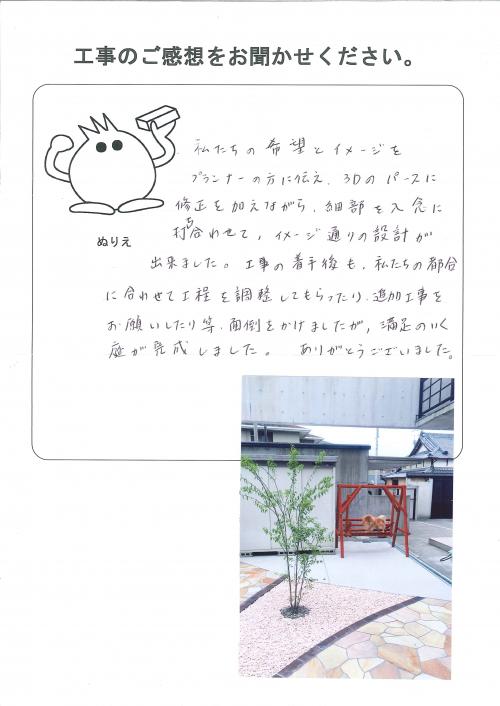 工事のご感想をお聞かせください。
私たちの希望とイメージを
プランナーの方に伝え、3Dのパースに
修正を加えながら、細部を入念に
打ち合わせて、イメージ通りの設計が
ぬりえ
出来ました。工事の着手後も、私たちの都合
に合わせて工程を調整してもらったり、追加工事を
お願いしたり等、面倒をかけましたが、満足のいく
庭が完成しました。 ありがとうございました。